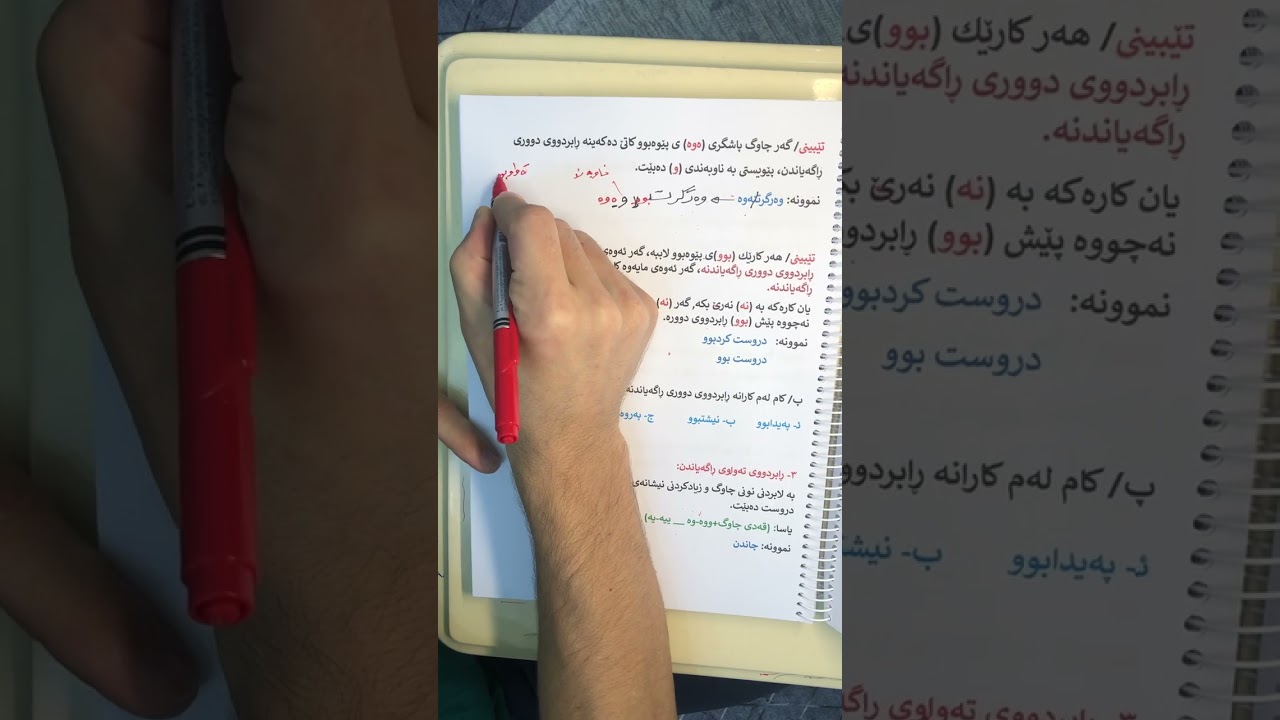 تێبینی/ گەر چاوگ پاشگری (ەوە) ی پێوەبوو کاتێ دەکەینە ڕابردووی دووری
ڕاگەیاندن، پێویستی بە ناوبەندی (و) دەبێت.
نموونە: وەرگرتنەوە وەرگرت بوو و ەوە
تێبینی/ هەر کارێك (بوو)ی پێوەبوو لاببە، گەر ئەوەی
ڕابردووی دووری ڕاگەیاندنە، گەر ئەوەی مایەوە
ڕاگەیاندنە.
یان کارەکە بە (نە) نەرێ بکە، گەر (نە)
نەچووە پێش (بوو) ڕابردووی دوورە.
نموونە: دروست کردبوو
دروست بوو
پ/ کام لەم کارانە ڕابردووی دووری ڕاگەیاندنە
ئ- پەیدابوو ب- نیشتبوو ج-
٣- ڕابردووی تەواوی ڕاگەیاندن:
بە لابردنی نونی چاوگ و زیادکردنی نیشانەی
دروست دەبێت.
یاسا: (قەدی چاوگ+ووە-وە __ ییە-یە)
نموونە: چاندن
تێبینی/ هەر کارێك (بوو)ی
ڕابردووی دووری ڕاگەیاندنە
ڕاگەیاندنە.
یان کارەکە بە (نە) نەرێ بکە
نەچووە پێش (بوو) ڕابردو
نموونە: دروست کردبوو
دروست بوو
پ/ کام لەم کارانە ڕابردوو
ئ- پەیدابوو ب- نیشت
٣- ڕابردووی تەواوی ڕاگەیاندن